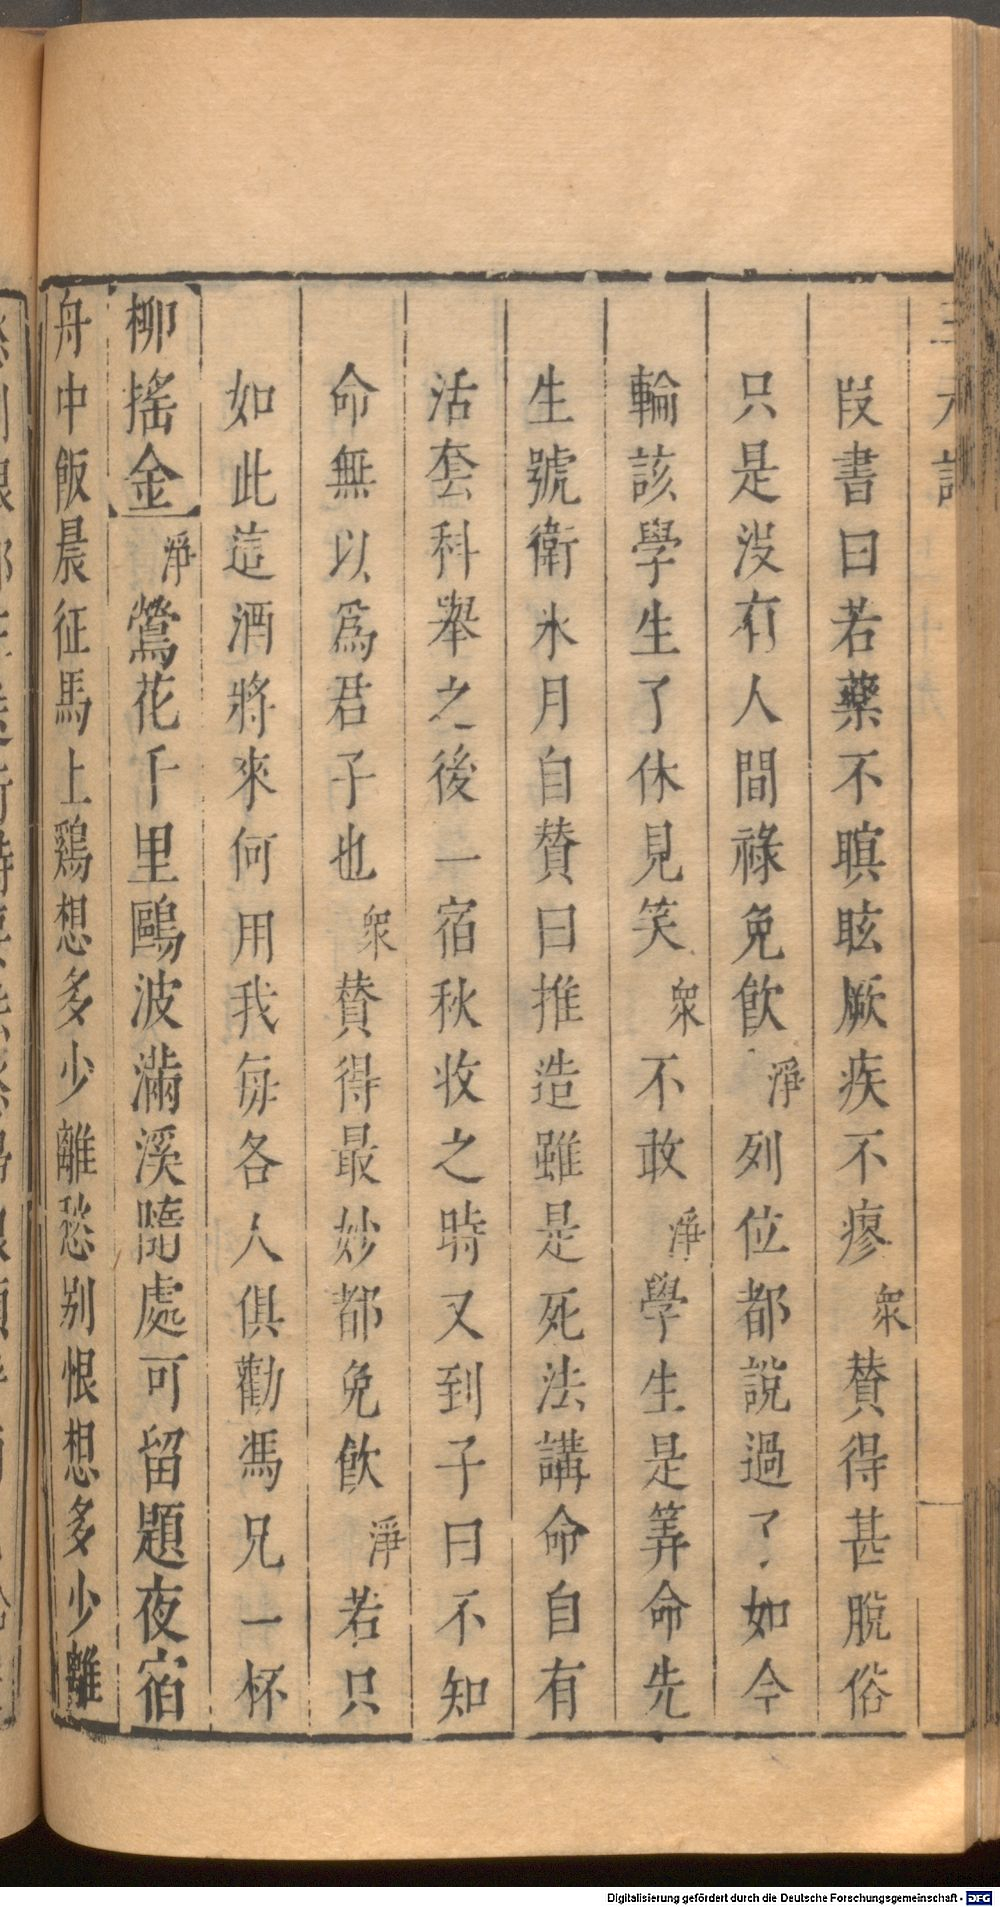 三元記
段書曰若藥不瞑眩厥疾不瘳衆賛得甚脫俗
只是沒有人間祿免飮淨列位都說過了如今
輪該學生了休見笑衆不敢淨學生是筭命先
生號衛氷月自賛曰推造雖是死法講命自有
活套科舉之後一宿秋收之時又到子曰不知
命無以爲君子也衆賛得最妙都免飮淨若只
如此這酒將來何用我每各人俱勸馮兄一杯
柳搖金淨鶯花千里鷗波滿溪隨處可留題夜宿
舟中飯晨征馬上鷄想多少離愁别恨想多少離
Digitalisierung gefördert durch die Deutsche Forschungsgemeinschaft - DFG